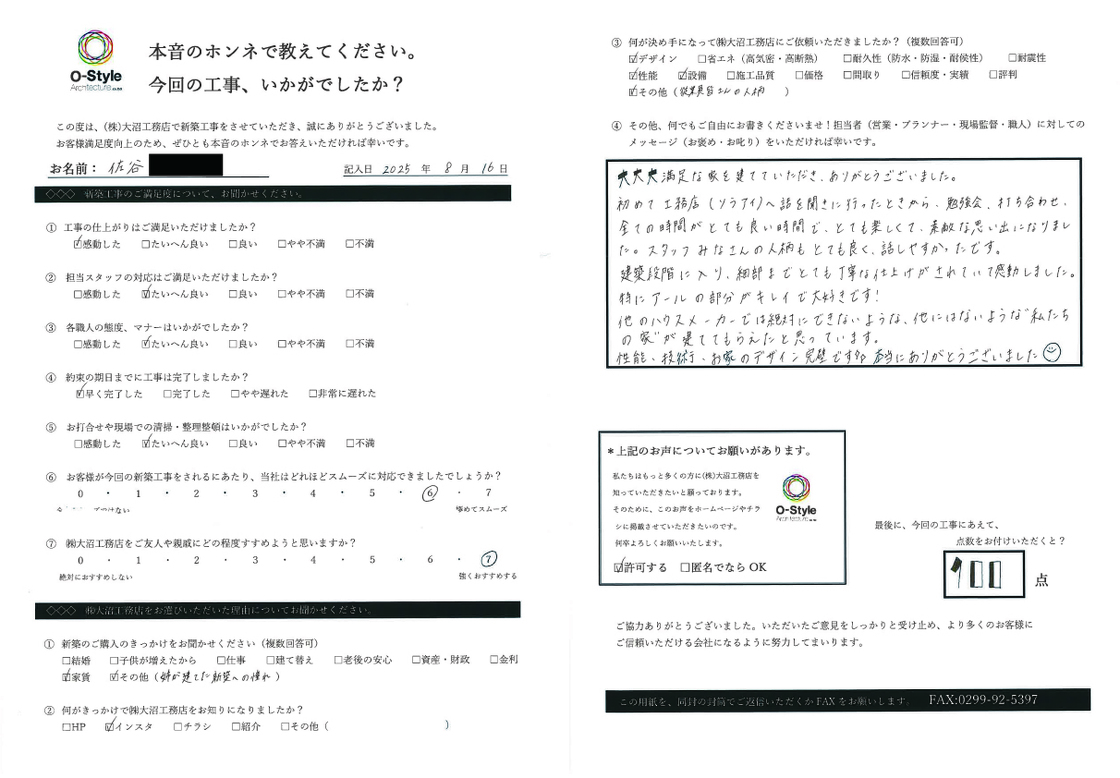 O-Style
Architecture.
本音のホンネで教えてください。
今回の工事、いかがでしたか？
この度は、(株)大沼工務店で新築工事をさせていただき、誠にありがとうございました。
お客様満足度向上のため、ぜひとも本音のホンネでお答えいただければ幸いです。
お名前： 佐谷
記入日 2025 年 8 月 16 日
◇◇◇ 新築工事のご満足度について、お聞かせください。
① 工事の仕上がりはご満足いただけましたか？
☑感動した □たいへん良い □良い □やや不満 □不満
② 担当スタッフの対応はご満足いただけましたか？
□感動した ☑たいへん良い □良い □やや不満 □不満
③ 各職人の態度、マナーはいかがでしたか？
□感動した ☑たいへん良い □良い □やや不満 □不満
④ 約束の期日までに工事は完了しましたか？
☑早く完了した □完了した □やや遅れた □非常に遅れた
⑤ お打合せや現場での清掃・整理整頓はいかがでしたか？
□感動した ☑たいへん良い □良い □やや不満 □不満
⑥ お客様が今回の新築工事をされるにあたり、当社はどれほどスムーズに対応できましたでしょうか？
0 ・ 1 ・ 2 ・ 3 ・ 4 ・ 5 ・ 6 ・ 7
極めてスムーズ
⑦ ㈱大沼工務店をご友人や親戚にどの程度すすめようと思いますか？
0 ・ 1 ・ 2 ・ 3 ・ 4 ・ 5 ・ 6 ・ 7
絶対におすすめしない 強くおすすめする
◇◇◇ ㈱大沼工務店をお選びいただいた理由についてお聞かせください。
① 新築のご購入のきっかけをお聞かせください（複数回答可）
□結婚 □子供が増えたから □仕事 □建て替え □老後の安心 □資産・財政 □金利
☑家賃 ☑その他（姉が建てた新築への憧れ）
② 何がきっかけで㈱大沼工務店をお知りになりましたか？
□HP ☑インスタ □チラシ □紹介 □その他（ ）
③ 何が決め手になって㈱大沼工務店にご依頼いただきましたか？（複数回答可）
☑デザイン □省エネ（高気密・高断熱） □耐久性（防水・防湿・耐候性） □耐震性
☑性能 ☑設備 □施工品質 □価格 □間取り □信頼度・実績 □評判
☑その他（従業員皆さんの人柄 ）
④ その他、何でもご自由にお書きくださいませ！担当者（営業・プランナー・現場監督・職人）に対しての
メッセージ（お褒め・お叱り）をいただければ幸いです。
満足な家を建てていただき、ありがとうございました。
初めて工務店（ソラアイ）へ話を聞きに行ったときから、勉強会、打ち合わせ、
全ての時間がとても良い時間で、とても楽しくて、素敵な思い出になりまし
た。スタッフみなさんの人柄もとても良く、話しやすかったです。
建築段階に入り、細部までとても丁寧な仕上げがされていて感動しました。
特にアールの部分がキレイで大好きです！
他のハウスメーカーでは絶対にできないような、他にはないような"私たち
の家"が建ててもらえたと思っています。
性能、技術、お家のデザイン完璧です 本当にありがとうございました
＊上記のお声についてお願いがあります。
私たちはもっと多くの方に(株)大沼工務店を
知っていただきたいと願っております。
そのために、このお声をホームページやチラ
シに掲載させていただきたいのです。
何卒よろしくお願いいたします。
☑許可する □匿名でなら OK
O-Style
Architecture.
最後に、今回の工事にあえて、
点数をお付けいただくと？
100 点
ご協力ありがとうございました。いただいたご意見をしっかりと受け止め、より多くのお客様に
ご信頼いただける会社になるように努力してまいります。
この用紙を、同封の封筒でご返信いただくか FAX をお願いします。 FAX:0299-92-5397